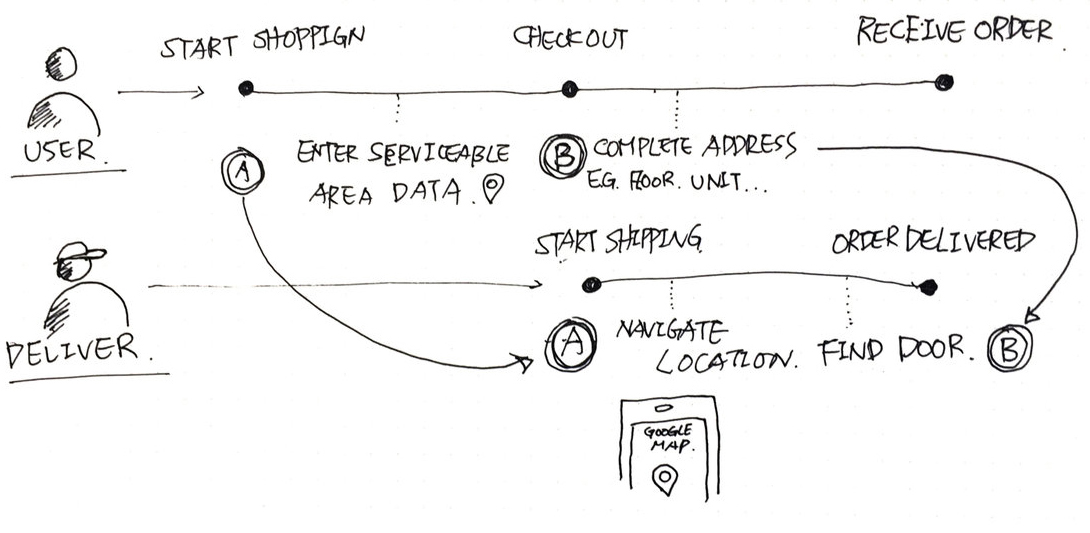 START SHOPPIGN
CHECKOUT
RECEIVE ORDER.
USER.
A
ENTER SERVICEABLE
AREA DATA.
B
COMPLETE ADDRESS
E.G. FLOOR. UNIT...
START SHIPPING
ORDER DELIVERED
DELIVER.
A
NAVIGATE
LOCATION.
FIND DOOR.
B
GOOGLE
MAP.